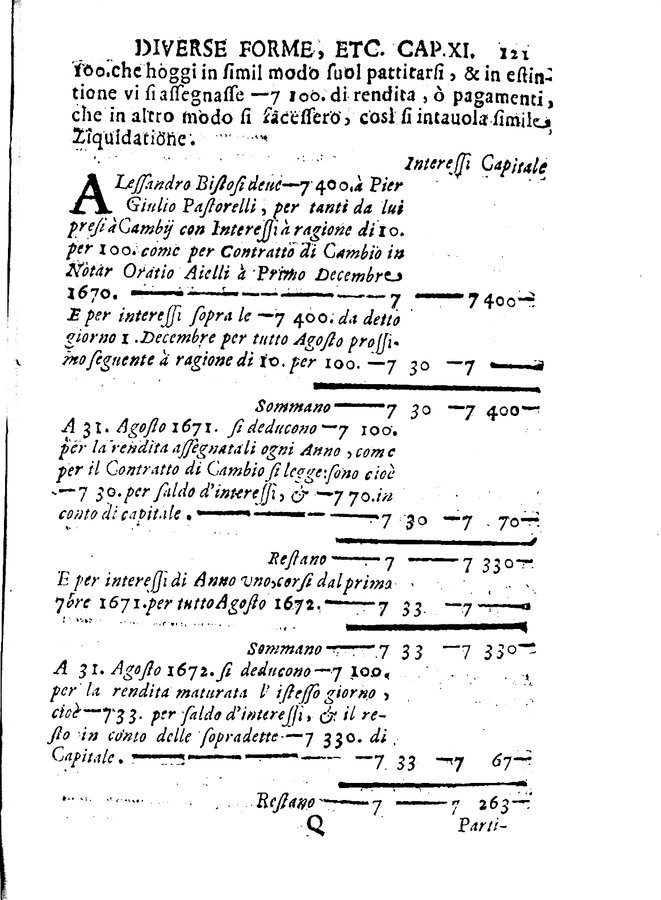 DIVERSE FORME, ETC. CAP.XI. 121
100.che hoggi in simil modo suol pattitarsi, & in estin-
tione vi si assegnasse —7 100. di rendita, ò pagamenti,
che in altro modo si facessero, così si intauola simile
Liquidatione.
Interessi Capitale
ALessandro Bistosi deue—7 400.à Pier
Giulio Pastorelli, per tanti da lui
presi à Cambij con Interessi à ragione di 10.
per 100. come per Contratto di Cambio in
Notar Oratio Aielli à Primo Decembre
1670. — 7 — 7 400—
E per interessi sopra le —7 400. da detto
giorno 1. Decembre per tutto Agosto prossi-
mo seguente à ragione di 10. per 100. —7 30 —7 —
Sommano —7 30 —7 400—
A 31. Agosto 1671. si deducono —7 100.
per la rendita assegnatali ogni Anno, come
per il Contratto di Cambio si legge: sono cioè
—7 30. per saldo d'interessi, & —7 70. in
conto di capitale. —7 30 —7 70—
Restano —7 —7 330—
E per interessi di Anno uno,corsi dal prima
7bre 1671. per tutto Agosto 1672. —7 33 —7 —
Sommano —7 33 —7 330—
A 31. Agosto 1672. si deducono —7 100.
per la rendita maturata l' istesso giorno,
cioè —7 33. per saldo d'interessi, & il re-
sto in conto delle sopradette —7 330. di
Capitale. —7 33 —7 67—
Restano —7 —7 263—
Q Parti-